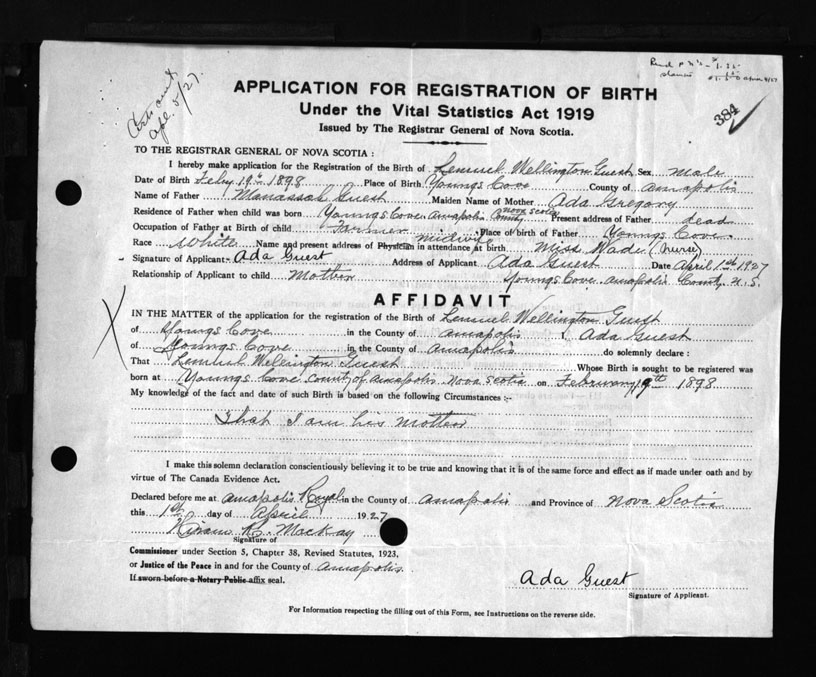 Apl. 5/27.
384
APPLICATION FOR REGISTRATION OF BIRTH
Under the Vital Statistics Act 1919
Issued by The Registrar General of Nova Scotia.
TO THE REGISTRAR GENERAL OF NOVA SCOTIA :
I hereby make application for the Registration of the Birth of Lemuel Wellington Guest Sex male
Date of Birth Feby 19th 1898 Place of Birth Youngs Cove County of Annapolis
Name of Father Manassah Guest Maiden Name of Mother Ada Gregory
Residence of Father when child was born Youngs Cove Annapolis County Nova Scotia Present address of Father dead
Occupation of Father at Birth of child Farmer Place of birth of Father Youngs Cove
Race White Name and present address of Physician midwife in attendance at birth Miss Wade (nurse)
Signature of Applicant Ada Guest Address of Applicant Ada Guest Date April 1st 1927
Relationship of Applicant to child Mother Youngs Cove Annapolis County N.S.
AFFIDAVIT
IN THE MATTER of the application for the registration of the Birth of Lemuel Wellington Guest
of Youngs Cove in the County of Annapolis I Ada Guest
of Youngs Cove in the County of Annapolis do solemnly declare :
That Lemuel Wellington Guest Whose Birth is sought to be registered was
born at Youngs Cove County of Annapolis Nova Scotia on February 19th 1898
My knowledge of the fact and date of such Birth is based on the following Circumstances :-
That I am his Mother
I make this solemn declaration conscientiously believing it to be true and knowing that it is of the same force and effect as if made under oath and by
virtue of The Canada Evidence Act.
Declared before me at Annapolis Royal in the County of Annapolis and Province of Nova Scotia
this 1st day of April 1927
Hiram K. Mackay
Signature of
Commissioner under Section 5, Chapter 38, Revised Statutes, 1923,
or Justice of the Peace in and for the County of Annapolis
If sworn before a Notary Public affix seal.
Ada Guest
Signature of Applicant.
For Information respecting the filling out of this Form, see Instructions on the reverse side.